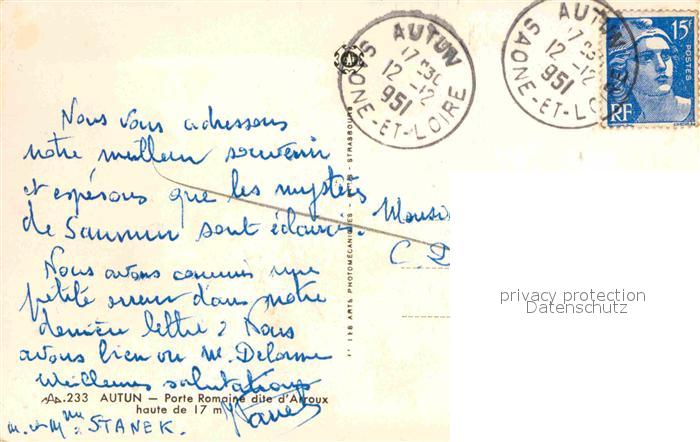 AUTUN
17 H 30
12 -12
951
SAONE-ET-LOIRE
AUTUN
12 -12
951
SAONE-ET-LOIRE
15F
POSTES
RF
Nous vous adressons
notre meilleur souvenir
et espérons que les mystères
de Saumur sont éclaircis.
Nous avons commis une
petite erreur dans notre
dernière lettre : Nous
avons bien vu M. Delorme
Meilleures salutations
Stanek
M. et Mme STANEK.
Monsi
C. D
ARTS PHOTOMÉCANIQUES
STRASBOURG
233 AUTUN — Porte Romaine dite d'Arroux
haute de 17 m
privacy protection
Datenschutz